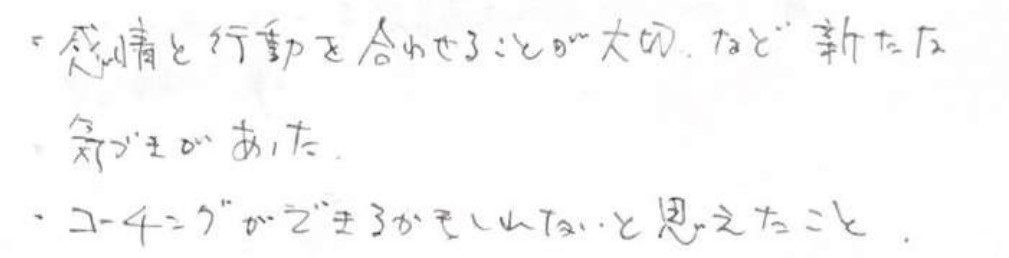 ・感情と行動を合わせることが大切、など新たな
・気づきがあった。
・コーチングができるかもしれないと思えたこと。